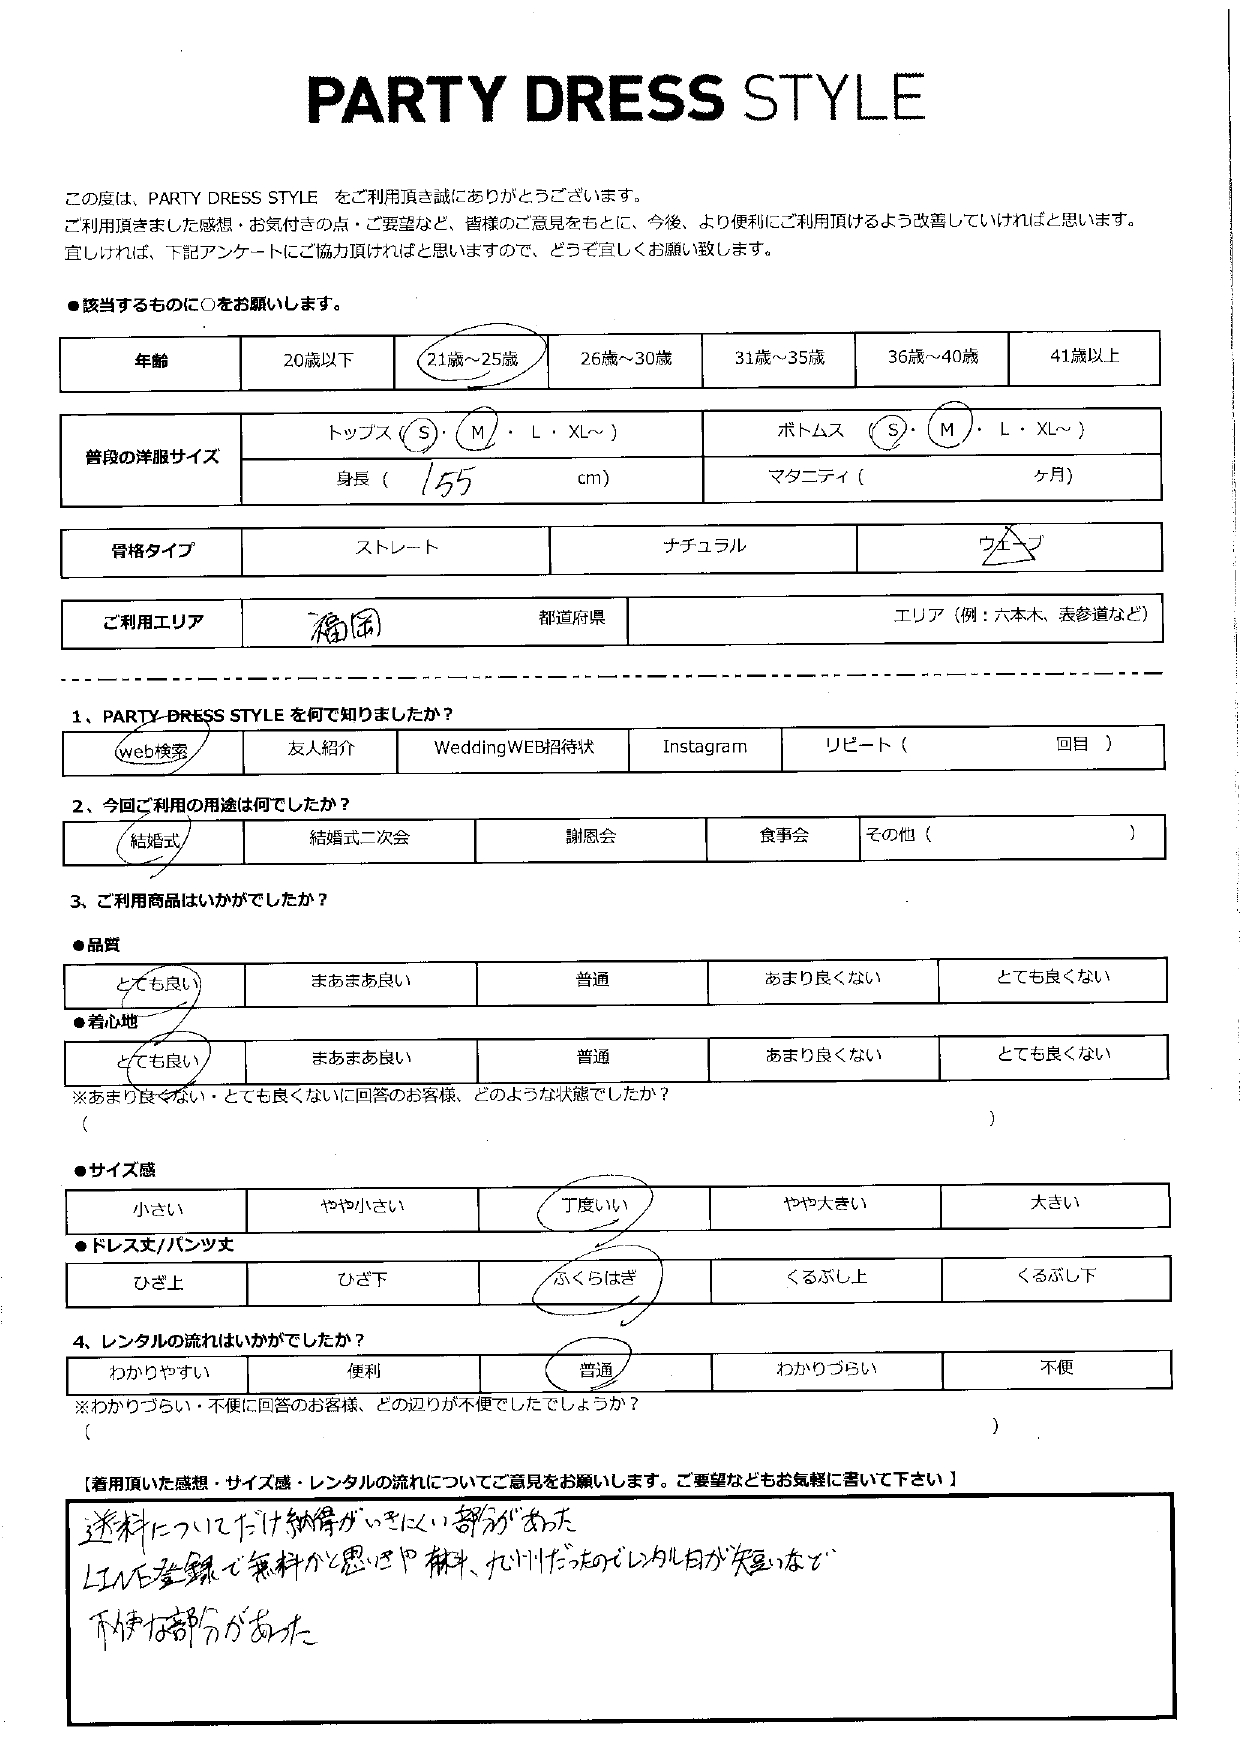 PARTY DRESS STYLE
この度は、PARTY DRESS STYLE をご利用頂き誠にありがとうございます。
ご利用頂きました感想・お気付きの点・ご要望など、皆様のご意見をもとに、今後、より便利にご利用頂けるよう改善していければと思います。
宜しければ、下記アンケートにご協力頂ければと思いますので、どうぞ宜しくお願い致します。
●該当するものに○をお願いします。
年齢 20歳以下 21歳～25歳 26歳～30歳 31歳～35歳 36歳～40歳 41歳以上
普段の洋服サイズ
トップス ( S ・ M ・ L ・ XL～ ) ボトムス ( S ・ M ・ L ・ XL～ )
身長 ( 155 cm) マタニティ ( ヶ月)
骨格タイプ ストレート ナチュラル ウエーブ
ご利用エリア 福岡 都道府県 エリア (例：六本木、表参道など)
1、PARTY DRESS STYLE を何で知りましたか？
web検索 友人紹介 WeddingWEB招待状 Instagram リピート ( 回目 )
2、今回ご利用の用途は何でしたか？
結婚式 結婚式二次会 謝恩会 食事会 その他 ( )
3、ご利用商品はいかがでしたか？
●品質
とても良い まあまあ良い 普通 あまり良くない とても良くない
●着心地
とても良い まあまあ良い 普通 あまり良くない とても良くない
※あまり良くない・とても良くないに回答のお客様、どのような状態でしたか？
( )
●サイズ感
小さい やや小さい 丁度いい やや大きい 大きい
●ドレス丈/パンツ丈
ひざ上 ひざ下 ふくらはぎ くるぶし上 くるぶし下
4、レンタルの流れはいかがでしたか？
わかりやすい 便利 普通 わかりづらい 不便
※わかりづらい・不便に回答のお客様、どの辺りが不便でしたでしょうか？
( )
【着用頂いた感想・サイズ感・レンタルの流れについてご意見をお願いします。ご要望などもお気軽に書いて下さい 】
送料についてだけ納得がいきにくい部分があった
LINE登録で無料かと思いきや有料、九州だったのでレンタル日が短いなど
不便な部分があった